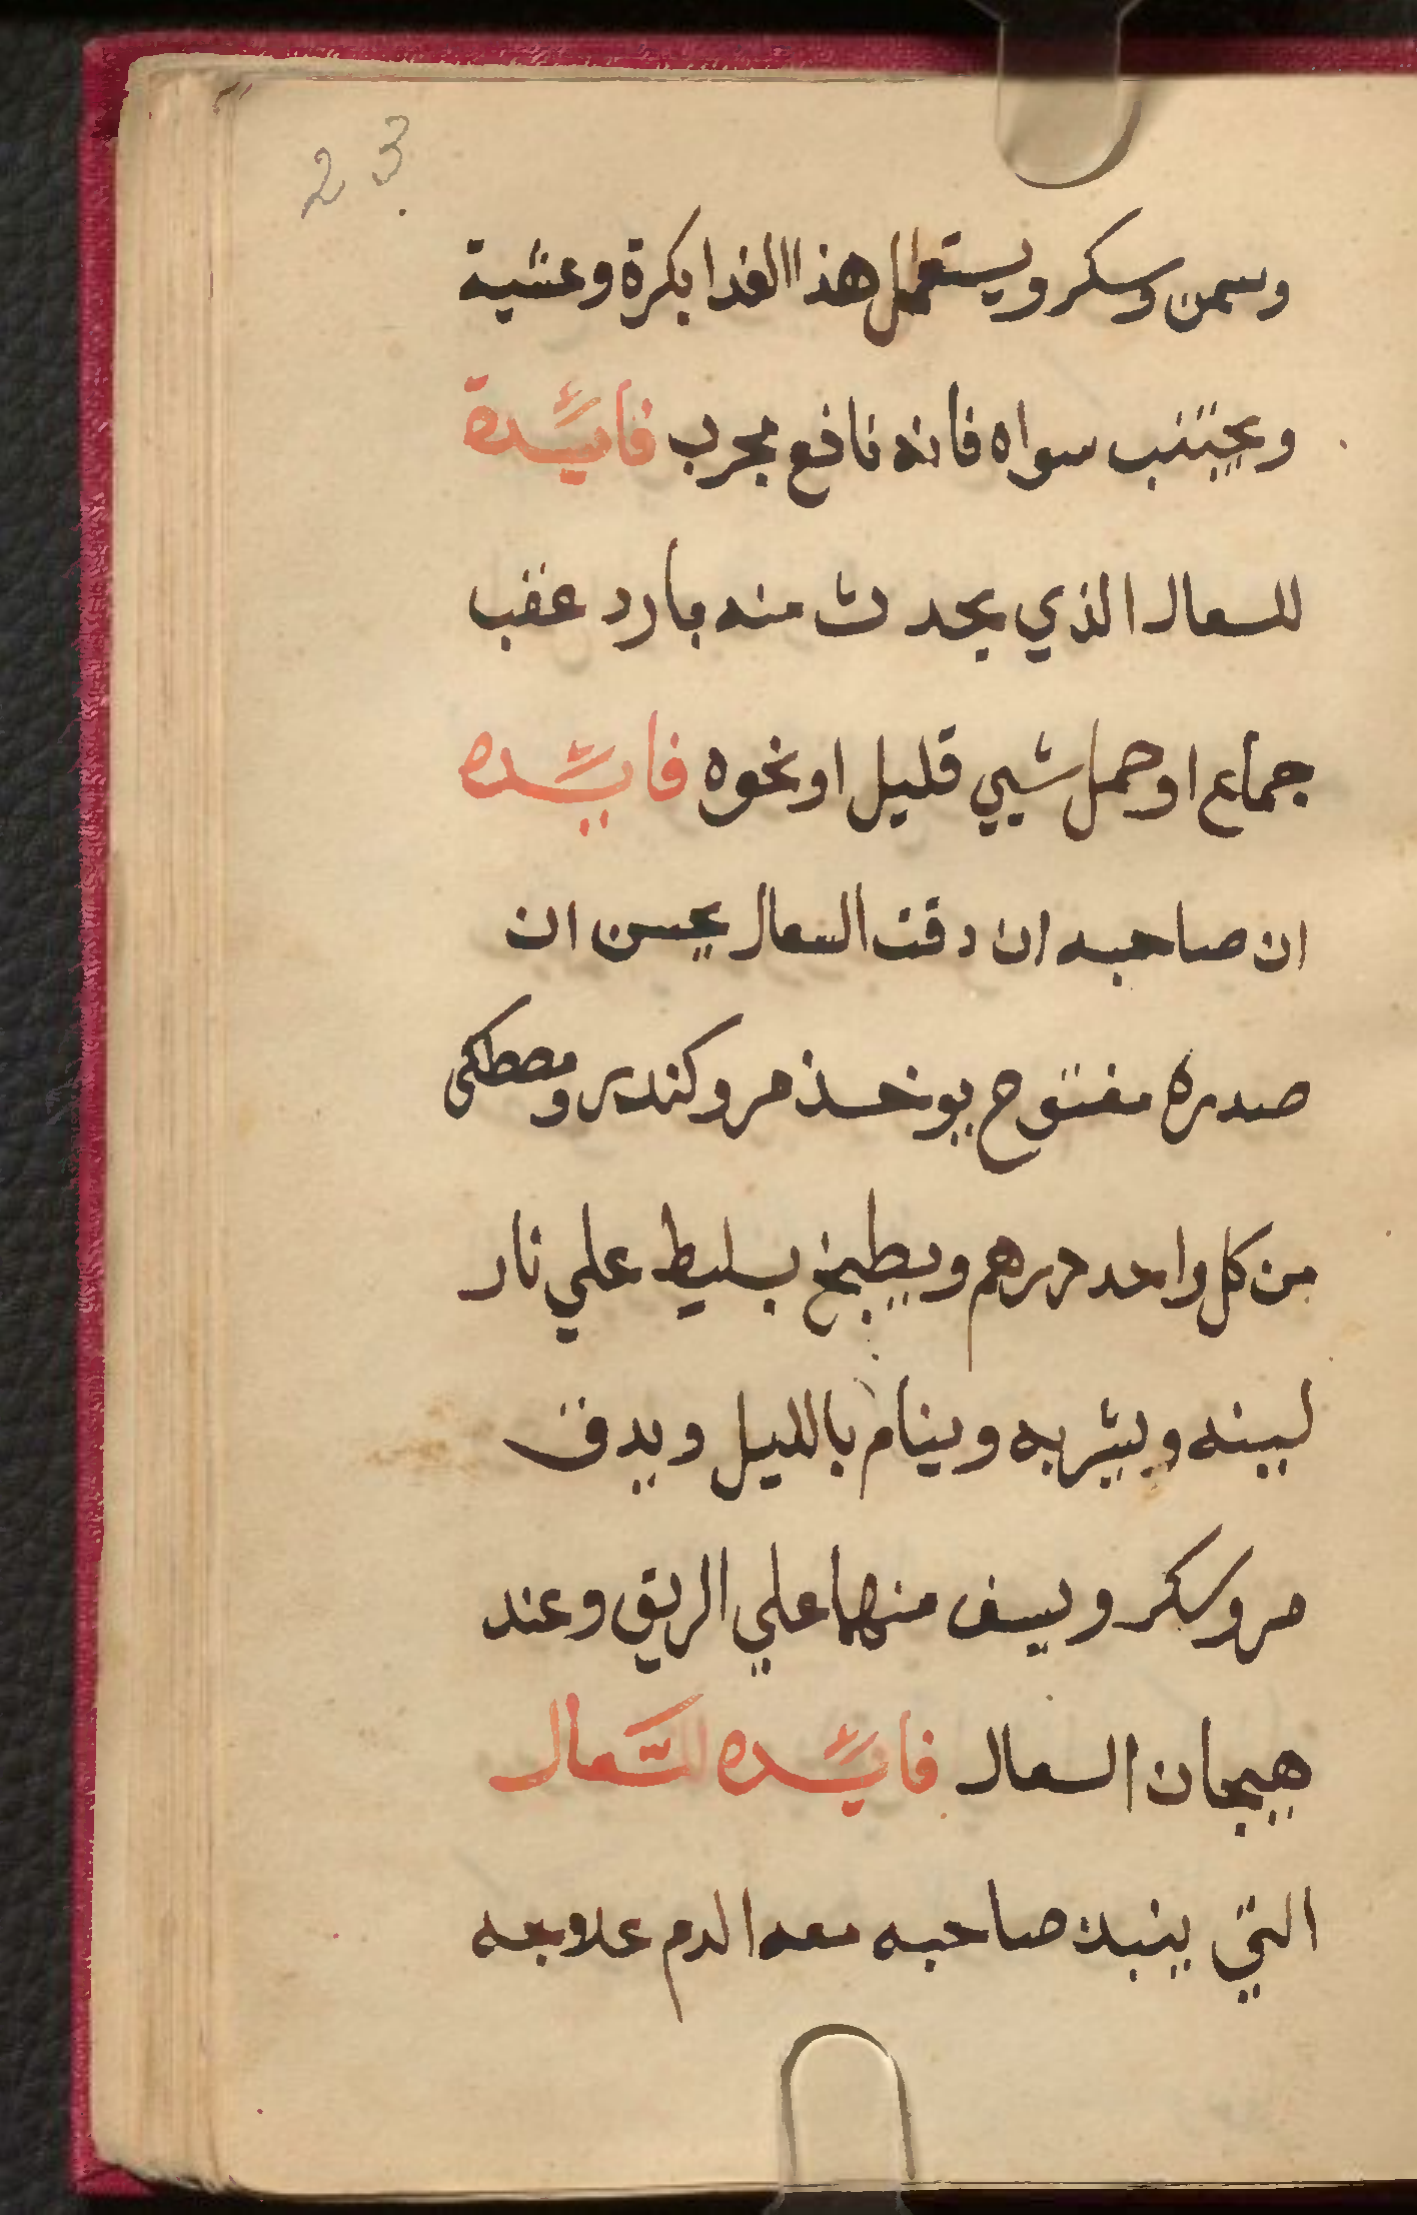 23
وسمن وسكر ويستعمل هذا الغدا بكرة وعشية
ويجتنب سواه فانه نافع مجرب فايئدة
للسعال الذي يحدث منه بارد عقب
جماع او حمل شيي قليل او نحوه فايئده
ان صاحبه ان دقت السعال يحسن ان
صدره مفتوح يوخذ مر وكندر ومصطكى
من كل واحد درهم ويطبخ بسليط علي نار
لينه ويشربه وينام بالليل ويدق
مر وسكر ويسف منهما علي الريق وعند
هيجان السعال فايئده للسعال
التي ينبذ صاحبه معه الدم علاجه